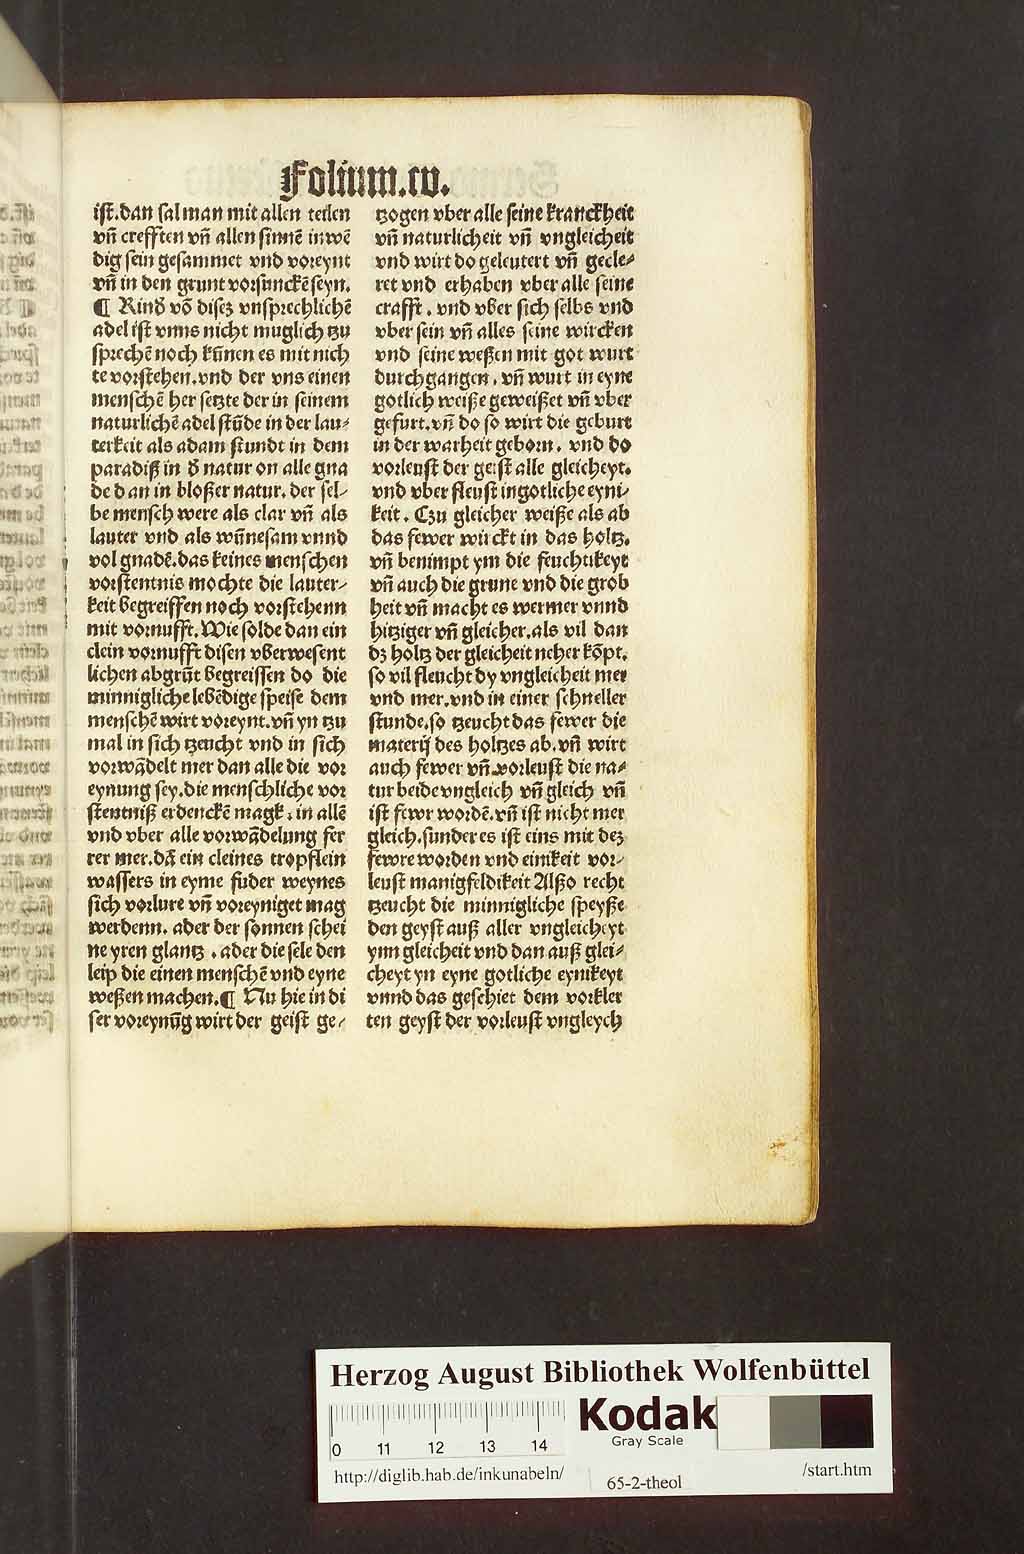 Folium.cv.
ist.dan sal man mit allen teilen
vñ crefften vñ allen sinnē inwē
dig sein gesammet vnd voreynt
vñ in den grunt vorsunckē seyn.
¶ Kinđ vō disez vnsprechlichē
adel ist vnns nicht muglich tzu
sprechē noch kũnen es mit nich
te vorstehen.vnd der vns einen
menschē her setzte der in seinem
naturlichē adel stũde in der lau⸗
terkeit als adam stundt in dem
paradiß in đ natur on alle gna
de dan in bloßer natur. der sel⸗
be mensch were als clar vñ als
lauter vnd als wũnesam vnnd
vol gnadē.das keines menschen
vorstentnis mochte die lauter⸗
keit begreiffen noch vorstehenn
mit vornufft.Wie solde dan ein
clein vornufft disen vberwesent
lichen abgrũt begreiffen do die
minnigliche lebēdige speise dem
menschē wirt voreynt.vñ yn tzu
mal in sich tzeucht vnd in sich
vorwādelt mer dan alle die vor
eynung sey.die menschliche vor
stentniß erdenckē magk. in allē
vnd vber alle vorwādelung fer
rer mer.dā ein cleines tropflein
wassers in eyme fuder weynes
sich vorlure vñ voreyniget mag
werdenn. aber der sonnen schei
ne yren glantz . aber die sele den
leip die einen menschē vnd eyne
weßen machen.¶ Nu hie in di
ser voreynũg wirt der geist ge⸗
tzogen vber alle seine kranckheit
vñ naturlicheit vñ vngleicheit
vnd wirt do geleutert vñ gecle⸗
ret vnd erhaben vber alle seine
crafft . vnd vber sich selbs vnd
vber sein vñ alles seine wircken
vnd seine weßen mit got wurt
durchgangen. vñ wurt in eyne
gotlich weiße geweißet vñ vber
gefurt.vñ do so wirt die geburt
in der warheit geborn. vnd do
vorleust der geist alle gleicheyt.
vnd vber fleust in gotliche eyni⸗
keit . Czu gleicher weiße als ab
das fewer wirckt in das holtz.
vñ benimpt ym die feuchtikeyt
vñ auch die grune vnd die grob
heit vñ macht es wermer vnnd
hitziger vñ gleicher.als vil dan
dz holtz der gleicheit neher kōpt.
so vil fleucht dy vngleicheit mer
vnd mer.vnd in einer schneller
stunde.so tzeucht das fewer die
materij des holtzes ab.vñ wirt
auch fewer vñ vorleust die na⸗
tur beide vngleich vñ gleich vñ
ist fewr wordē.vñ ist nicht mer
gleich.sunder es ist eins mit dez
fewre worden vnd einikeit vor⸗
leust manigfeldikeit Alßo recht
tzeucht die minnigliche speyße
den geyst auß aller vngleicheyt
ynn gleicheit vnd dan auß glei⸗
cheyt yn eyne gotliche eynikeyt
vnnd das geschiet dem vorkler
ten geyst der vorleust vngleych
Herzog August Bibliothek Wolfenbüttel
Kodak
Gray Scale
0 11 12 13 14
http://diglib.hab.de/inkunabeln/
65-2-theol
/start.htm